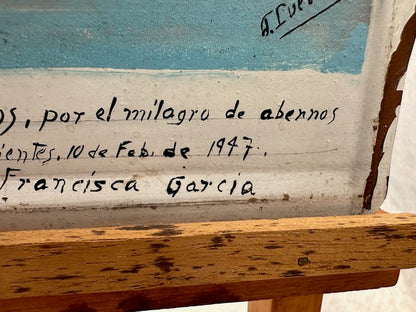 os, por el milagro de abernos
ientes, 10 de Feb. de 1947.
Francisca Garcia